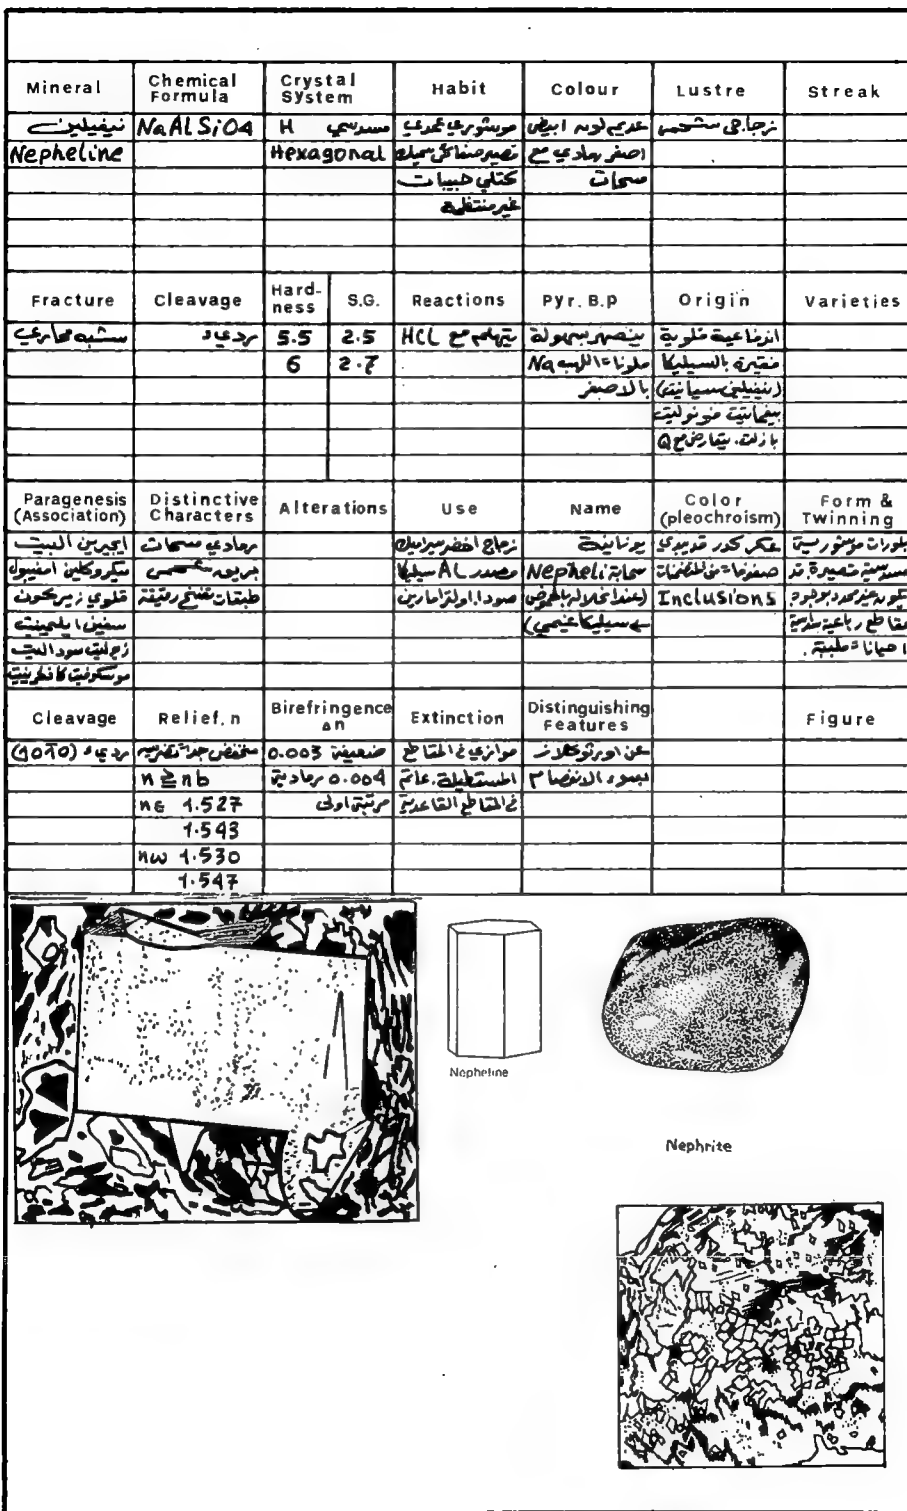 Mineral Chemical Formula Crystal System Habit Colour Lustre Streak
نيفيلين NaAlSiO4 H سداسي موشوري عمدي عديم لون ابيض زجاجي شحمي
Nepheline Hexagonal قصير صفائحي سميك اصفر رمادي مع
كتلي حبيبات سحات
غير منتظمة
Fracture Cleavage Hard-ness S.G. Reactions Pyr. B.p Origin Varieties
شبه محاري رديء 5.5 2.5 يتهلم مع HCl ينصهر بسهولة اندفاعية قلوية
6 2.7 ملونا اللهب Na فقيرة بالسيليكا
بالاصفر (نيفيلين سيانيت)
بيغماتيت فونوليت
بازلت. يتعارض مع Q
Paragenesis (Association) Distinctive Characters Alterations Use Name Color (pleochroism) Form & Twinning
ايجيرين البيت رمادي سحات زجاج اخضر سيراميك يونانية عكر كدر
ميكروكلين امفيبول بريق شحمي مصدر AL سيليكا سحابة Nepheli
قلوي زيركون طبقات صودا. اولترامارين (عند انحلاله بالحموض Inclusions
سفين ايلمينيت سيليكا غيمي) مقاطع رباعية
سوداليت احيانا
موسكوفيت كانكرينيت
Cleavage Relief, n Birefringence Δn Extinction Distinguishing Features Figure
رديء (1010) منخفض جدا ضعيفة 0.003 موازي في المقاطع عن اورتوكلاز
n ≧ nb 0.004 رمادية المستطيلة. عاتم بسوء الانفصام
nε 1.527 مرتبة اولى في المقاطع القاعدية
1.543
nω 1.530
1.547
Nepheline
Nephrite